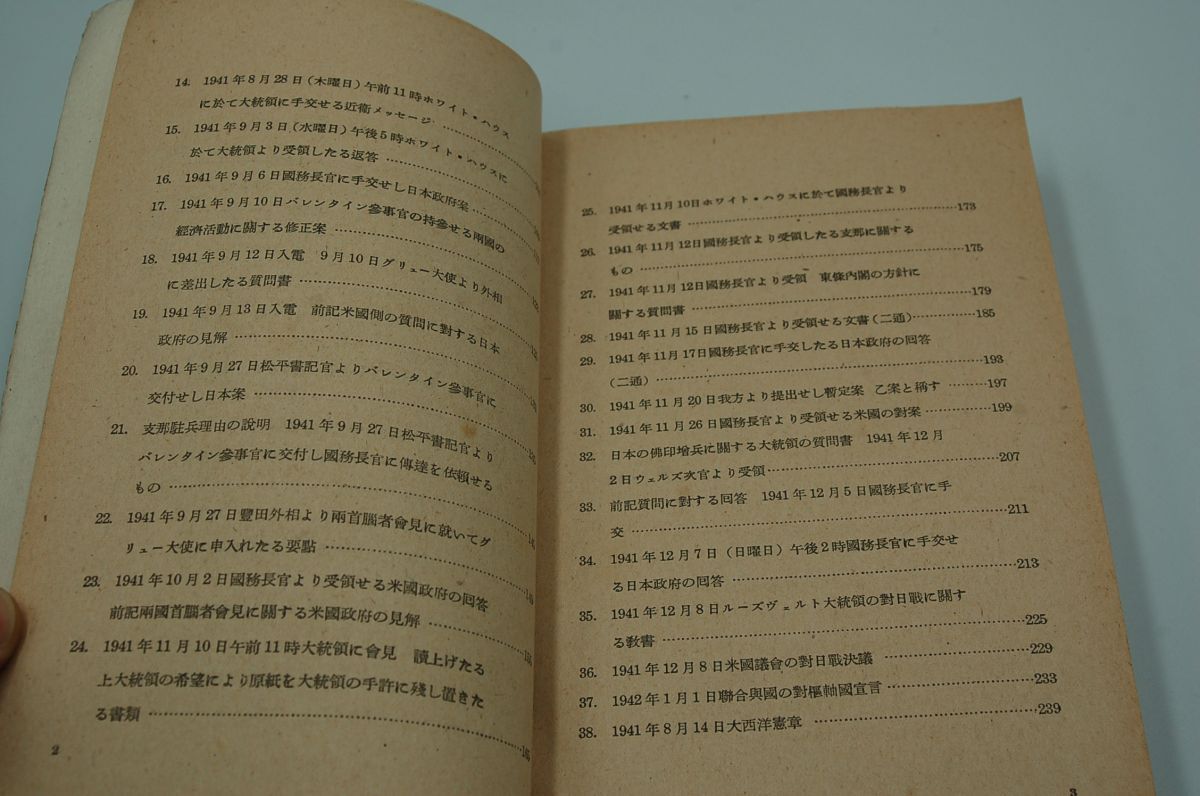 14. 1941年8月28日(木曜日)午前11時ホワイト・ハウス
に於て大統領に手交せる近衛メッセージ
15. 1941年9月3日(水曜日)午後5時ホワイト・ハウスに
於て大統領より受領したる返答
16. 1941年9月6日國務長官に手交せし日本政府案
17. 1941年9月10日バレンタイン參事官の持參せる兩國の
經濟活動に關する修正案
18. 1941年9月12日入電 9月10日グリュー大使より外相
に差出したる質問書
19. 1941年9月13日入電 前記米國側の質問に對する日本
政府の見解
20. 1941年9月27日松平書記官よりバレンタイン參事官に
交付せし日本案
21. 支那駐兵理由の說明 1941年9月27日松平書記官より
バレンタイン參事官に交付し國務長官に傳達を依賴せる
もの
22. 1941年9月27日豐田外相より兩首腦者會見に就いてグ
リュー大使に申入れたる要點
23. 1941年10月2日國務長官より受領せる米國政府の回答
前記兩國首腦者會見に關する米國政府の見解
24. 1941年11月10日午前11時大統領に會見 讀上げたる
上大統領の希望により原紙を大統領の手許に殘し置きた
る書類
2
25. 1941年11月10日ホワイト・ハウスに於て國務長官より
受領せる文書 173
26. 1941年11月12日國務長官より受領したる支那に關する
もの 175
27. 1941年11月12日國務長官より受領 東條內閣の方針に
關する質問書 179
28. 1941年11月15日國務長官より受領せる文書(二通) 185
29. 1941年11月17日國務長官に手交したる日本政府の回答
(二通) 193
30. 1941年11月20日我方より提出せし暫定案 乙案と稱す 197
31. 1941年11月26日國務長官より受領せる米國の對案 199
32. 日本の佛印增兵に關する大統領の質問書 1941年12月
2日ウェルズ次官より受領 207
33. 前記質問に對する回答 1941年12月5日國務長官に手
交 211
34. 1941年12月7日(日曜日)午後2時國務長官に手交せ
る日本政府の回答 213
35. 1941年12月8日ルーズヴェルト大統領の對日戰に關す
る敎書 225
36. 1941年12月8日米國議會の對日戰決議 229
37. 1942年1月1日聯合與國の對樞軸國宣言 233
38. 1941年8月14日大西洋憲章 239
3